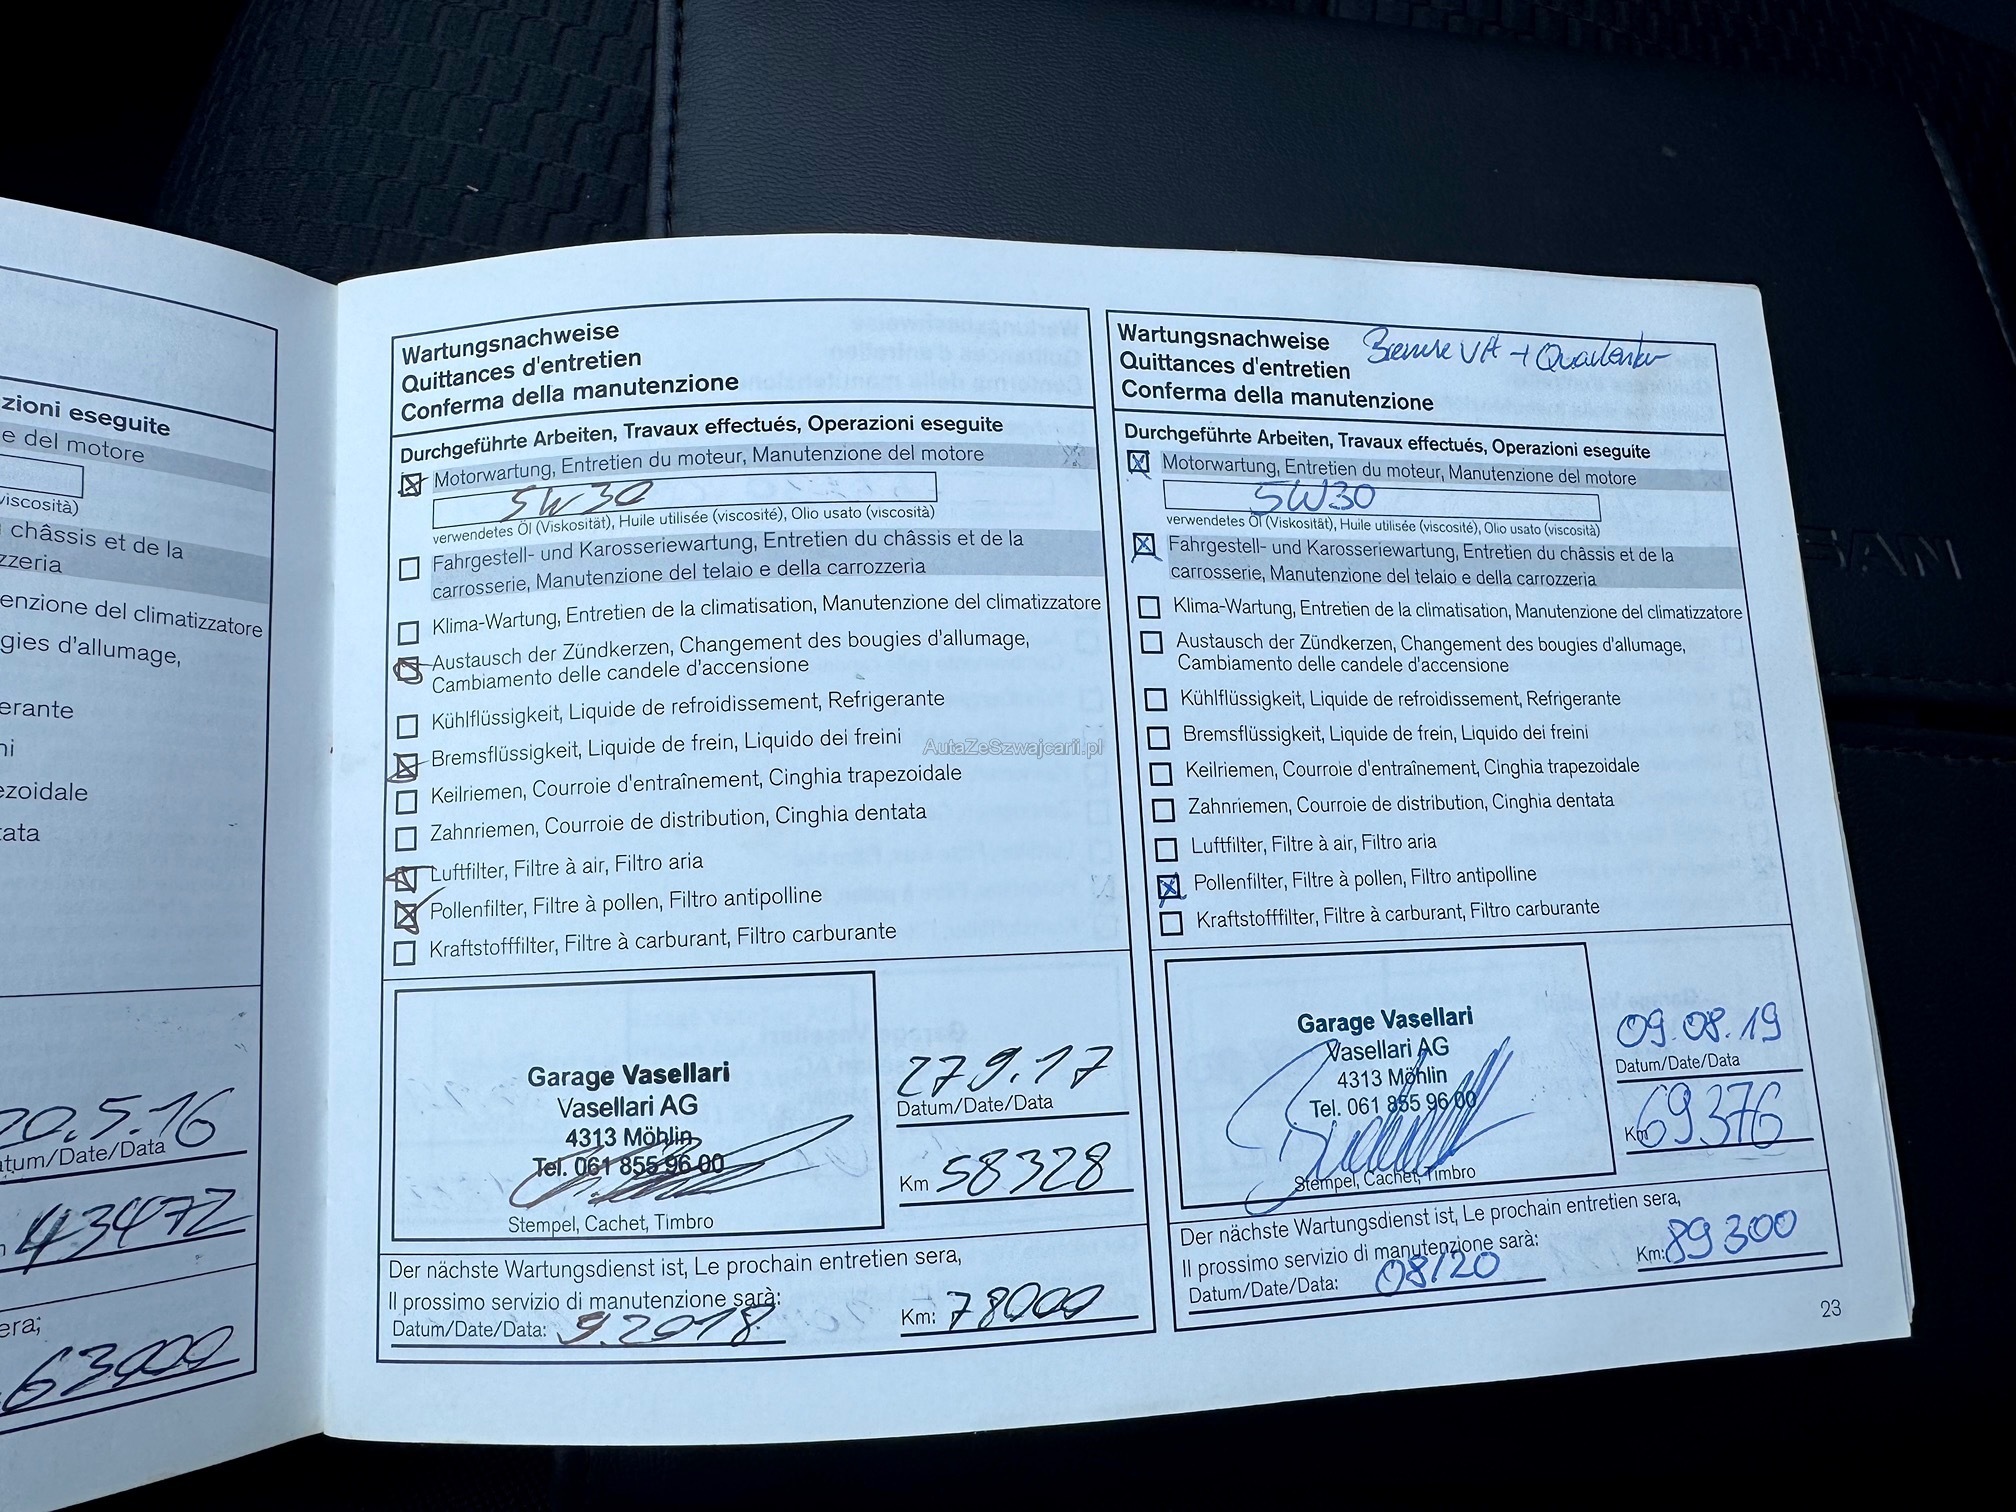 zioni eseguite
e del motore
viscosità)
châssis et de la
zzeria
enzione del climatizzatore
gies d'allumage,
erante
ni
ezoidale
tata
20.5.16
atum/Date/Data
43472
era;
63000
Wartungsnachweise
Quittances d'entretien
Conferma della manutenzione
Durchgeführte Arbeiten, Travaux effectués, Operazioni eseguite
Motorwartung, Entretien du moteur, Manutenzione del motore
5W30
verwendetes Öl (Viskosität), Huile utilisée (viscosité), Olio usato (viscosità)
Fahrgestell- und Karosseriewartung, Entretien du châssis et de la
carrosserie, Manutenzione del telaio e della carrozzeria
Klima-Wartung, Entretien de la climatisation, Manutenzione del climatizzatore
Austausch der Zündkerzen, Changement des bougies d'allumage,
Cambiamento delle candele d'accensione
Kühlflüssigkeit, Liquide de refroidissement, Refrigerante
Bremsflüssigkeit, Liquide de frein, Liquido dei freini
Keilriemen, Courroie d'entraînement, Cinghia trapezoidale
Zahnriemen, Courroie de distribution, Cinghia dentata
Luftfilter, Filtre à air, Filtro aria
Pollenfilter, Filtre à pollen, Filtro antipolline
Kraftstofffilter, Filtre à carburant, Filtro carburante
Garage Vasellari
Vasellari AG
4313 Möhlin
Tel. 061 855 96 00
Stempel, Cachet, Timbro
27.9.17
Datum/Date/Data
Km 58328
Der nächste Wartungsdienst ist, Le prochain entretien sera,
Il prossimo servizio di manutenzione sarà:
Datum/Date/Data: 9.2018 Km: 78000
Wartungsnachweise
Quittances d'entretien
Conferma della manutenzione
Durchgeführte Arbeiten, Travaux effectués, Operazioni eseguite
Motorwartung, Entretien du moteur, Manutenzione del motore
5W30
verwendetes Öl (Viskosität), Huile utilisée (viscosité), Olio usato (viscosità)
Fahrgestell- und Karosseriewartung, Entretien du châssis et de la
carrosserie, Manutenzione del telaio e della carrozzeria
Klima-Wartung, Entretien de la climatisation, Manutenzione del climatizzatore
Austausch der Zündkerzen, Changement des bougies d'allumage,
Cambiamento delle candele d'accensione
Kühlflüssigkeit, Liquide de refroidissement, Refrigerante
Bremsflüssigkeit, Liquide de frein, Liquido dei freini
Keilriemen, Courroie d'entraînement, Cinghia trapezoidale
Zahnriemen, Courroie de distribution, Cinghia dentata
Luftfilter, Filtre à air, Filtro aria
Pollenfilter, Filtre à pollen, Filtro antipolline
Kraftstofffilter, Filtre à carburant, Filtro carburante
Garage Vasellari
Vasellari AG
4313 Möhlin
Tel. 061 855 96 00
Stempel, Cachet, Timbro
09.08.19
Datum/Date/Data
Km 69376
Der nächste Wartungsdienst ist, Le prochain entretien sera,
Il prossimo servizio di manutenzione sarà:
Datum/Date/Data: 08/20 Km: 89300
23
AutaZeSzwajcarii.pl